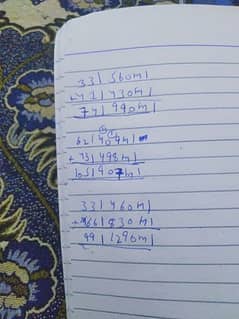 33l 560ml
+41l 430ml
74l 990ml
409ml
498ml
907ml
33l 460ml
+66l 830ml
99l 1290ml